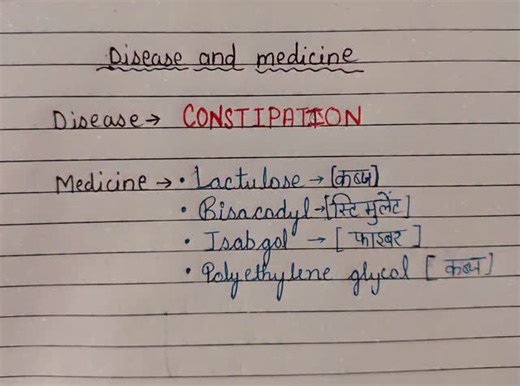 Disease and medicine
Disease → CONSTIPATION
Medicine → • Lactulose → [कब्ज]
• Bisacodyl → [स्टिमुलेंट]
• Isabgol → [फाइबर]
• Polyethylene glycol [कब्ज]